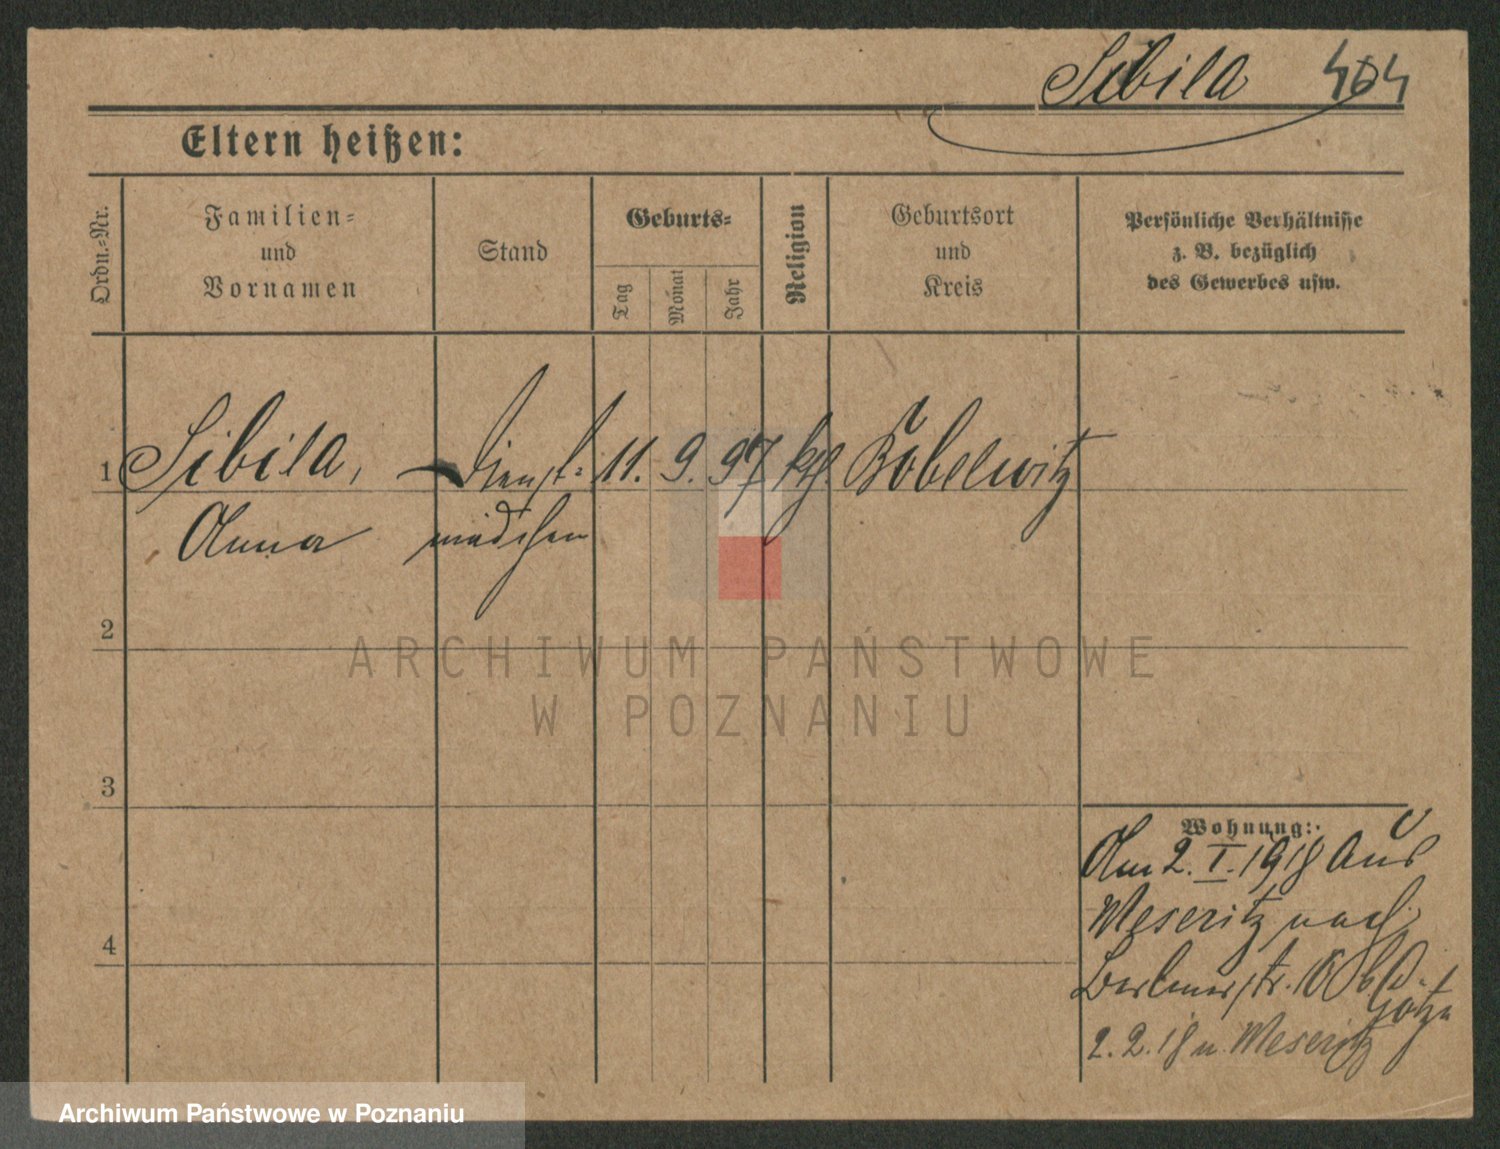 Sibila 404
Eltern heißen:
Ordn.=Nr.
Familien=
und
Vornamen
Stand
Geburts=
Tag
Monat
Jahr
Religion
Geburtsort
und
Kreis
Persönliche Verhältnisse
z. B. bezüglich
des Gewerbes usw.
1 Sibila, Dienst= 11. 9. 97 kth. Bobelwitz
Anna mädchen
2
ARCHIWUM PAŃSTWOWE
W POZNANIU
3
Wohnung:
Am 2. I. 1918 aus
Meseritz nach
Berlinerstr.
2. 2. 18 n. Meseritz
4
Archiwum Państwowe w Poznaniu